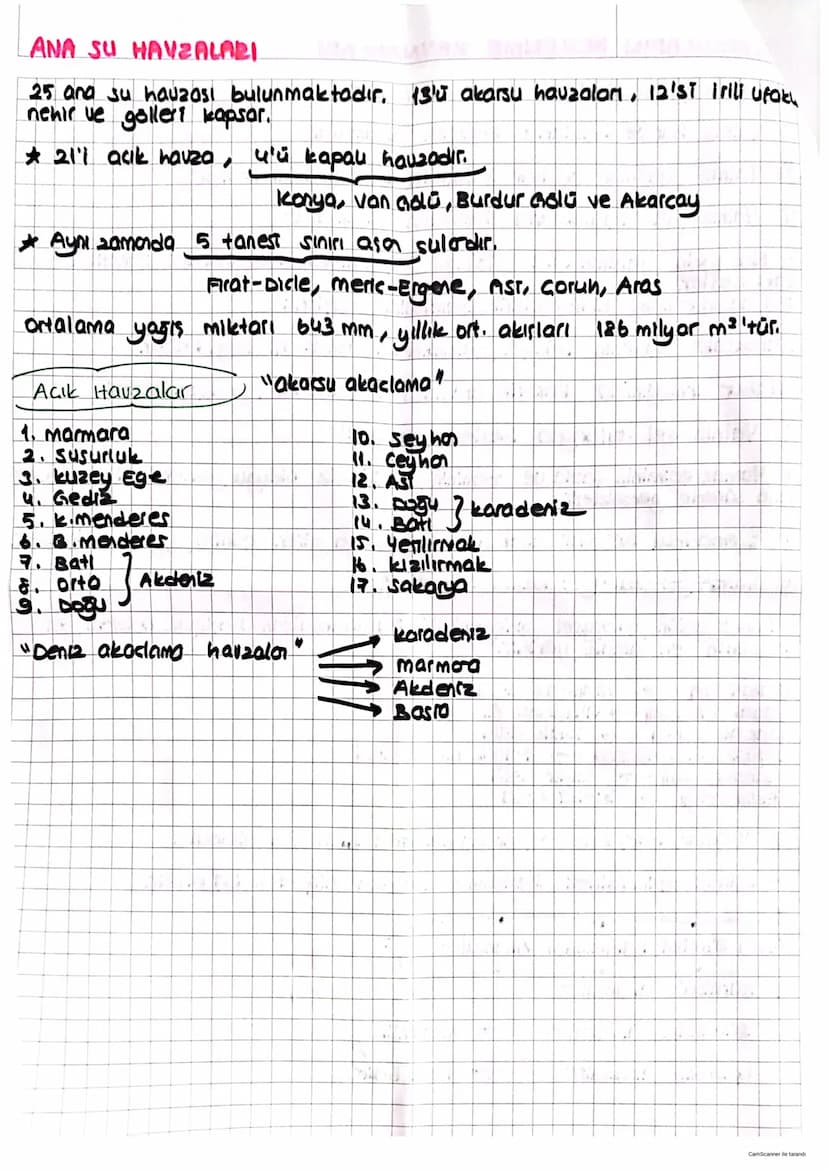 ANA SU HAVZALARI
25 ana su havzası bulunmaktadır. 13'ü akarsu havzaları, 12'si irili ufaklı
nehir ve gölleri kapsar.
★ 21'i açık havza, 4'ü kapalı havzadır.
Konya, Van Gölü, Burdur Gölü ve Akarçay
★ Aynı zamanda 5 tanesi sınırı aşan sulardır.
Fırat-Dicle, Meriç-Ergene, Asi, Çoruh, Aras
Ortalama yağış miktarı 643 mm, yıllık ort. akışları 186 milyar m³'tür.
Açık Havzalar "akarsu akaçlama"
1. Marmara
2. Susurluk
3. Kuzey Ege
4. Gediz
5. K.menderes
6. B.menderes
7. Batı
8. Orta
9. Doğu
Akdeniz
10. Seyhan
11. Ceyhan
12. Asi
13. Doğu
14. Batı
Karadeniz
15. Yeşilırmak
16. Kızılırmak
17. Sakarya
"Deniz akaçlama havzaları"
Karadeniz
Marmara
Akdeniz
Basra
CamScanner ile tarandı